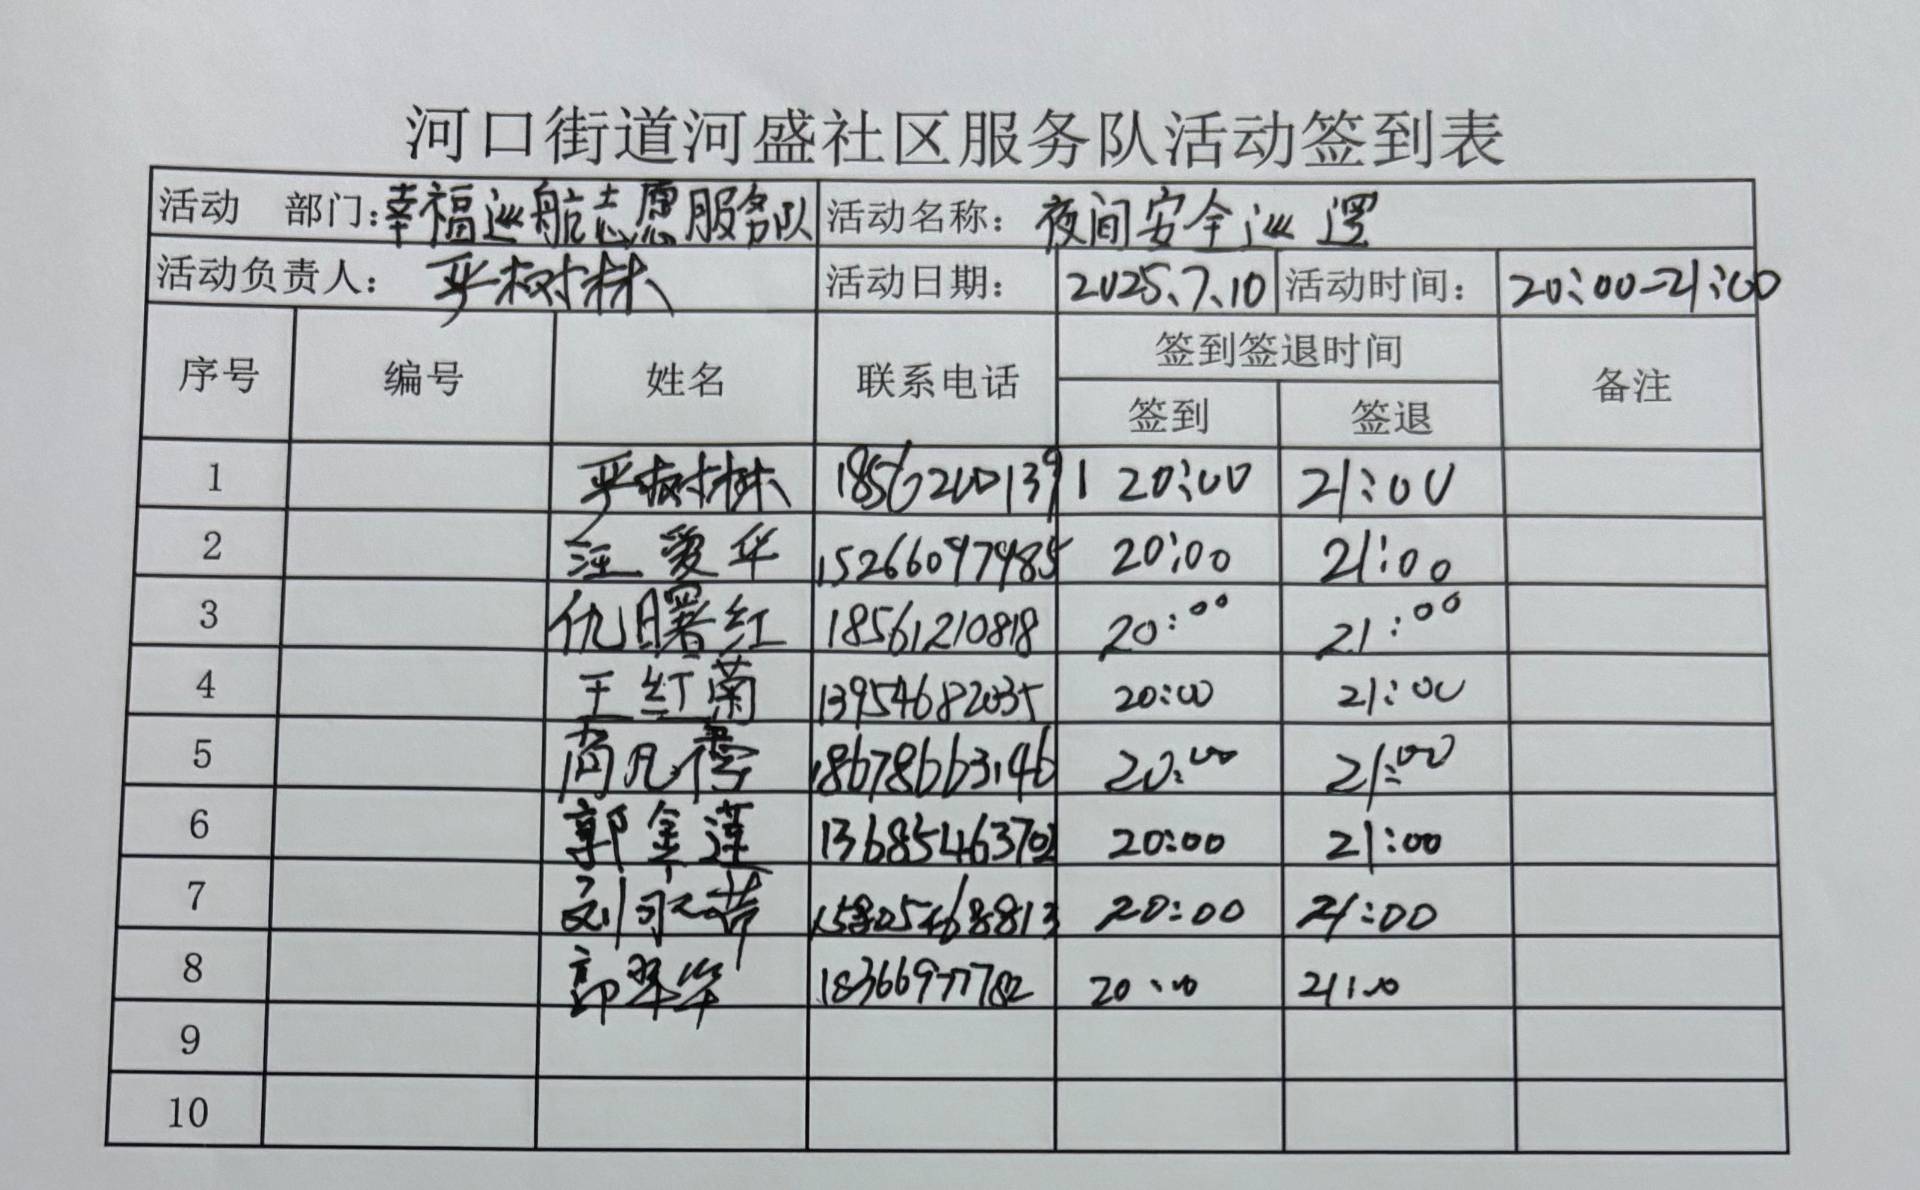 河口街道河盛社区服务队活动签到表
活动 部门:幸福巡航志愿服务队 活动名称: 夜间安全巡逻
活动负责人: 严树林 活动日期: 2025、7、10 活动时间: 20:00-21:00
序号 编号 姓名 联系电话 签到签退时间 备注
签到 签退
1 严树林 18562001391 20:00 21:00
2 汪爱华 15266097985 20:00 21:00
3 仇曙红 18561210818 20:00 21:00
4 王红菊 13954682035 20:00 21:00
5 18678663146 20:00 21:00
6 郭金莲 13685463702 20:00 21:00
7 15805468813 20:00 21:00
8 18366977782 20:00 21:00
9
10